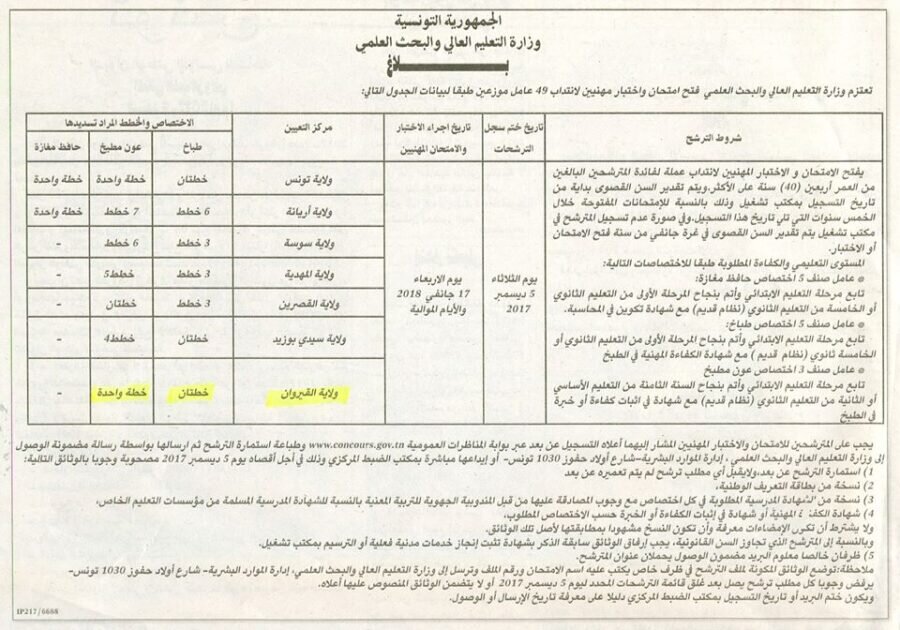 الجمهورية التونسية
وزارة التعليم العالي والبحث العلمي
بـــــــــــــلاغ
تعتزم وزارة التعليم العالي والبحث العلمي فتح امتحان واختبار مهنيين لانتداب 49 عامل موزعين طبقا لبيانات الجدول التالي:
شروط الترشح
تاريخ ختم سجل الترشحات
تاريخ اجراء الاختبار والامتحان المهنيين
مركز التعيين
الاختصاص والخطط المراد تسديدها
طباخ
عون مطبخ
حافظ مغازة
يفتح الامتحان و الاختبار المهنيين لانتداب عملة لفائدة المترشحين البالغين
من العمر أربعين (40) سنة على الأكثر.ويتم تقدير السن القصوى بداية من
تاريخ التسجيل بمكتب تشغيل وذلك بالنسبة للإمتحانات المفتوحة خلال
الخمس سنوات التي تلي تاريخ هذا التسجيل.وفي صورة عدم تسجيل المترشح في
مكتب تشغيل يتم تقدير السن القصوى في غرة جانفي من سنة فتح الامتحان
أو الاختبار.
المستوى التعليمي والكفاءة المطلوبة طبقا للاختصاصات التالية:
* عامل صنف 5 اختصاص حافظ مغازة:
تابع مرحلة التعليم الابتدائي وأتم بنجاح المرحلة الأولى من التعليم الثانوي
أو الخامسة من التعليم الثانوي (نظام قديم) مع شهادة تكوين في المحاسبة.
* عامل صنف 5 اختصاص طباخ:
تابع مرحلة التعليم الابتدائي وأتم بنجاح المرحلة الأولى من التعليم الثانوي أو
الخامسة ثانوي (نظام قديم ) مع شهادة الكفاءة المهنية في الطبخ
* عامل صنف 3 اختصاص عون مطبخ
تابع مرحلة التعليم الابتدائي وأتم بنجاح السنة الثامنة من التعليم الأساسي
أو الثانية من التعليم الثانوي (نظام قديم) مع شهادة في اثبات كفاءة أو خبرة
في الطبخ
يوم الثلاثاء
5 ديسمبر
2017
يوم الاربعاء
17 جانفي 2018
والأيام الموالية
ولاية تونس خطتان خطة واحدة خطة واحدة
ولاية أريانة 6 خطط 7 خطط خطة واحدة
ولاية سوسة 3 خطط 6 خطط -
ولاية المهدية 3 خطط 5خطط -
ولاية القصرين 3 خطط خطتان -
ولاية سيدي بوزيد خطتان 4خطط -
ولاية القيروان خطتان خطة واحدة -
يجب على المترشحين للامتحان والاختبار المهنيين المشار إليهما أعلاه التسجيل عن بعد عبر بوابة المناظرات العمومية www.concours.gov.tn وطباعة استمارة الترشح ثم ارسالها بواسطة رسالة مضمونة الوصول
إلى وزارة التعليم العالي والبحث العلمي ، إدارة الموارد البشرية-شارع أولاد حفوز 1030 تونس- أو إيداعها مباشرة بمكتب الضبط المركزي وذلك في أجل أقصاه يوم 5 ديسمبر 2017 مصحوبة وجوبا بالوثائق التالية:
1) استمارة الترشح عن بعد،ولايقبل أي مطلب ترشح لم يتم تعميره عن بعد
2) نسخة من بطاقة التعريف الوطنية.
3) نسخة من الشهادة المدرسية المطلوبة في كل اختصاص مع وجوب المصادقة عليها من قبل المندوبية الجهوية للتربية المعنية بالنسبة للشهادة المدرسية المسلمة من مؤسسات التعليم الخاص.
4) شهادة الكفاءة المهنية أو شهادة في إثبات الكفاءة أو الخبرة حسب الاختصاص المطلوب.
ولا يشترط أن تكون الإمضاءات معرفة وأن تكون النسخ مشهودا بمطابقتها لأصل تلك الوثائق.
وبالنسبة إلى المترشح الذي تجاوز السن القانونية، يجب إرفاق الوثائق سابقة الذكر بشهادة تثبت إنجاز خدمات مدنية فعلية أو الترسيم بمكتب تشغيل.
5) ظرفان خالصا معلوم البريد مضمون الوصول يحملان عنوان المترشح.
ملاحظة:توضع الوثائق المكونة لملف الترشح في ظرف خاص يكتب عليه اسم الامتحان ورقم الملف وترسل إلى وزارة التعليم العالي والبحث العلمي، إدارة الموارد البشرية- شارع أولاد حفوز 1030 تونس-
يرفض وجوبا كل مطلب ترشح يصل بعد غلق قائمة الترشحات المحدد ليوم 5 ديسمبر 2017 أو لا يتضمن الوثائق المنصوص عليها أعلاه.
ويكون ختم البريد أو تاريخ التسجيل بمكتب الضبط المركزي دليلا على معرفة تاريخ الإرسال أو الوصول.
IP217/6688